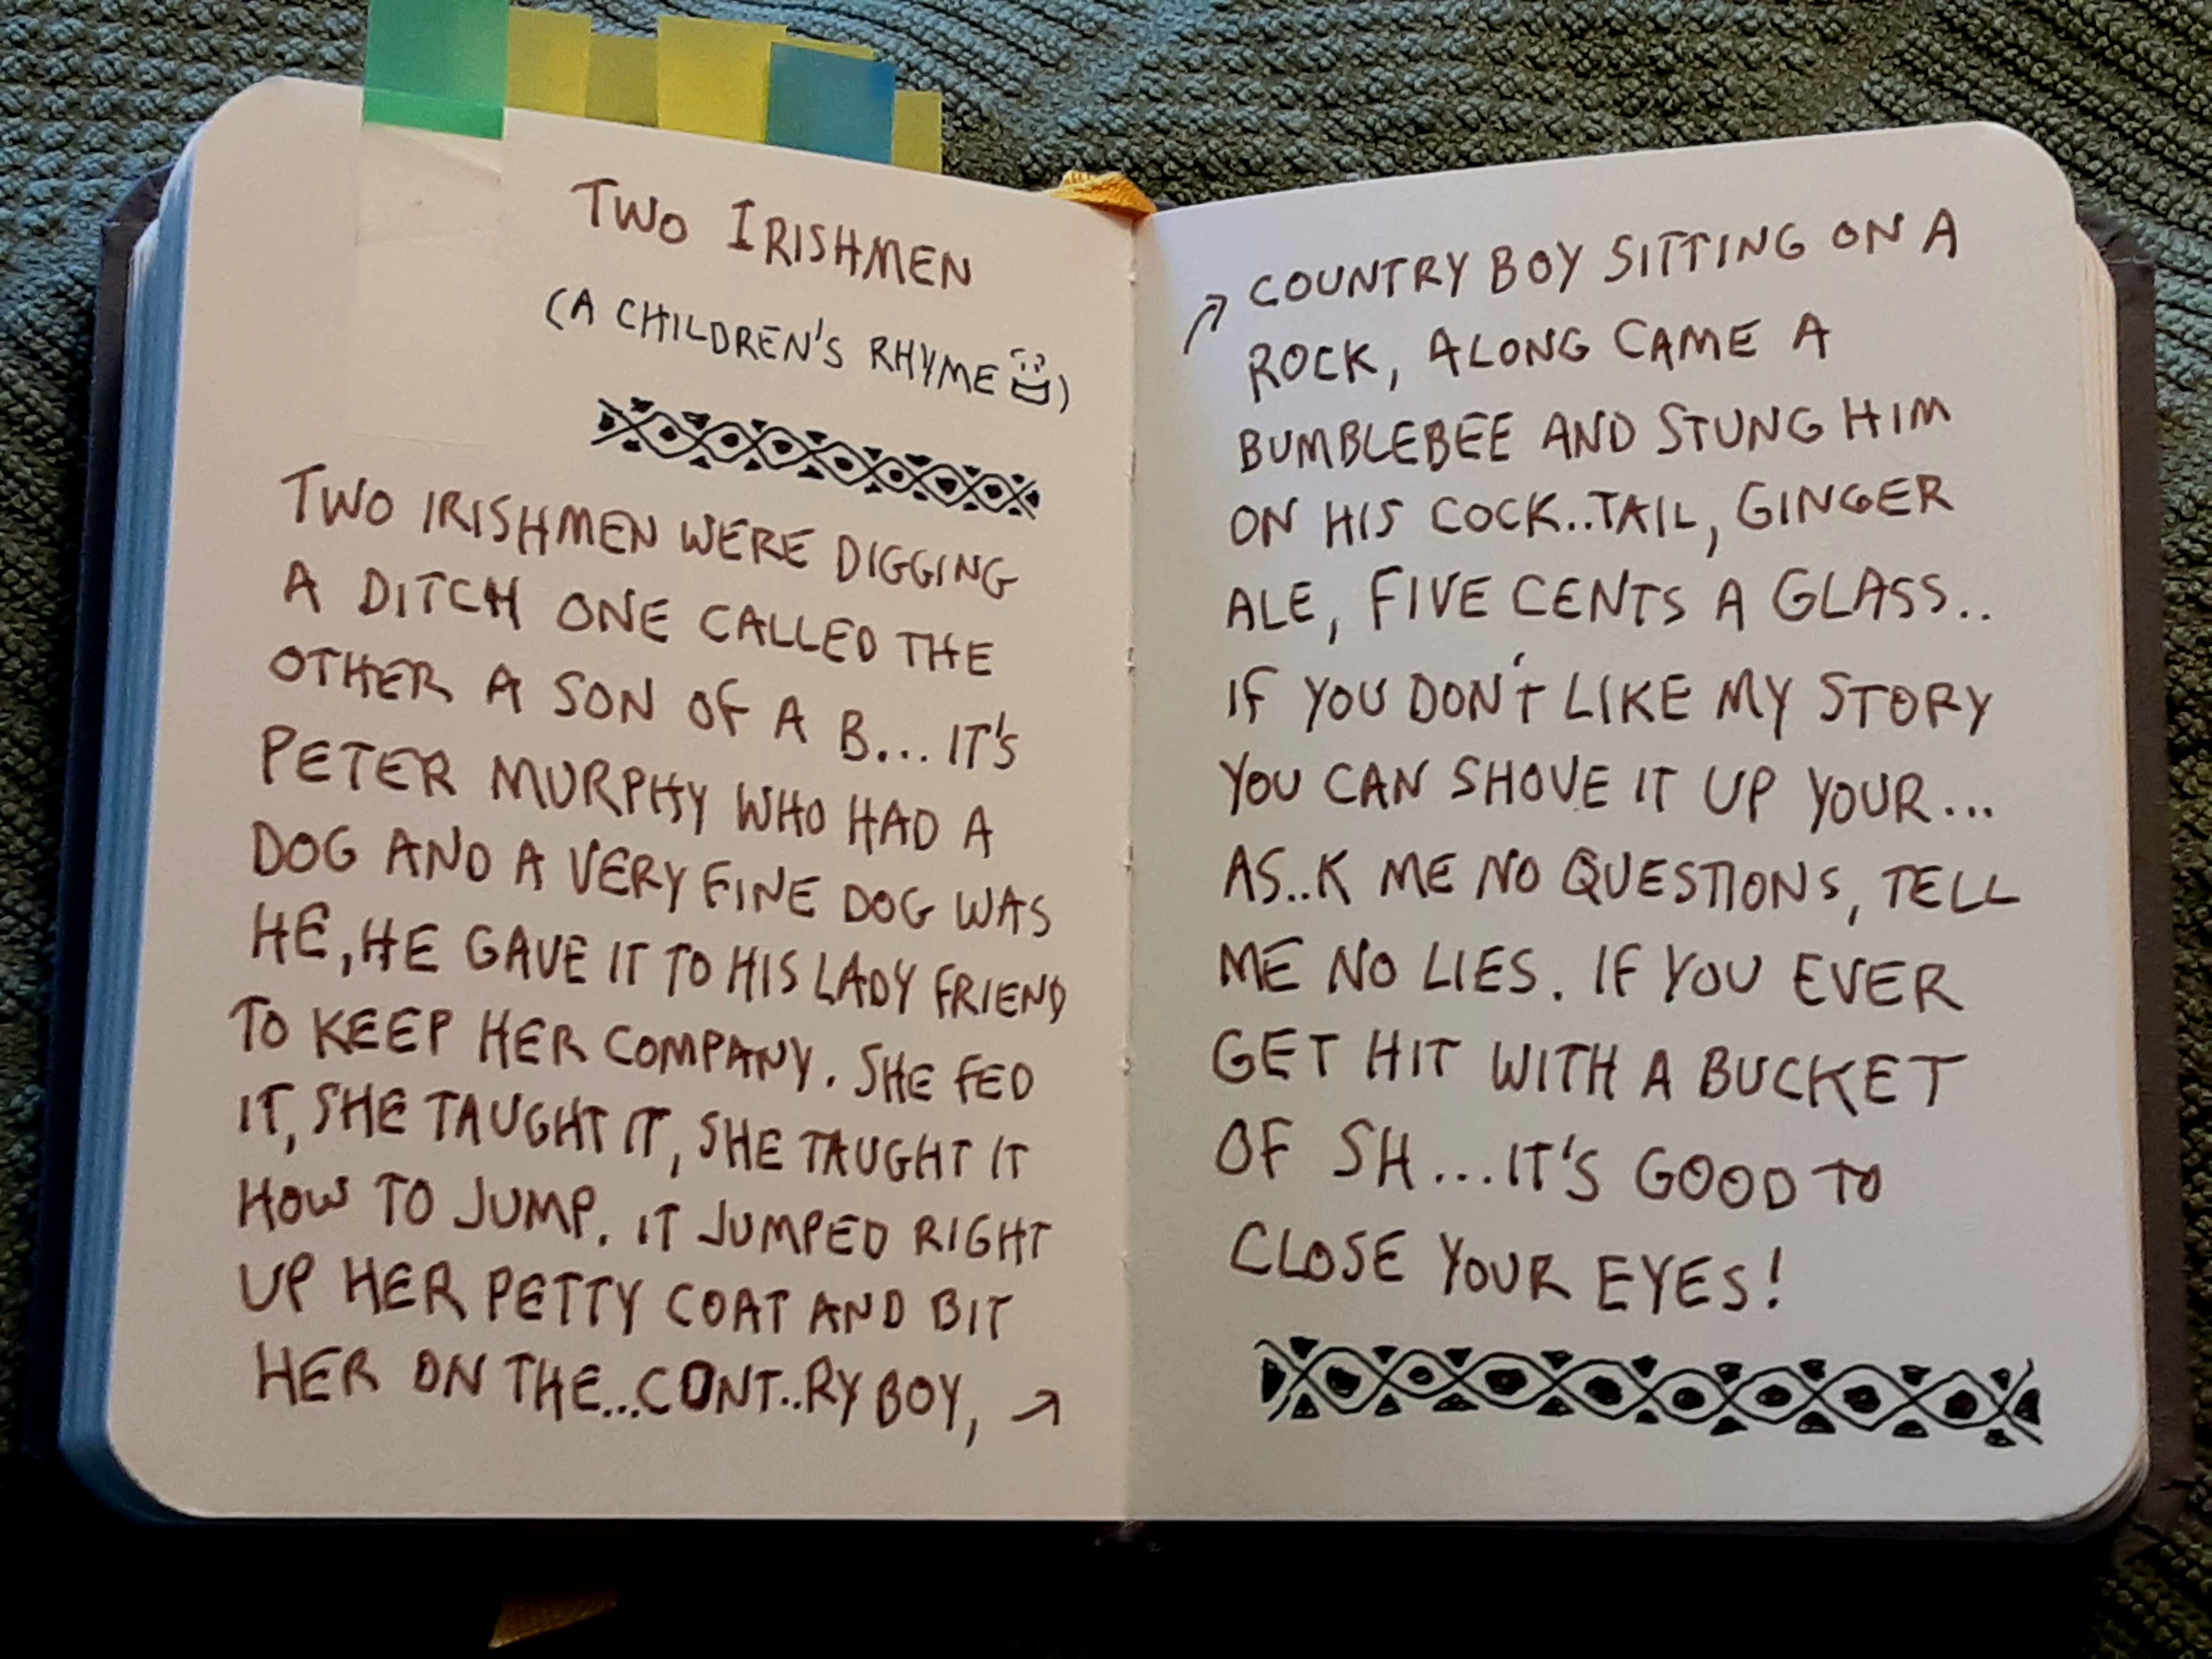 TWO IRISHMEN
(A CHILDREN'S RHYME)
TWO IRISHMEN WERE DIGGING
A DITCH ONE CALLED THE
OTHER A SON OF A B... IT'S
PETER MURPHY WHO HAD A
DOG AND A VERY FINE DOG WAS
HE, HE GAVE IT TO HIS LADY FRIEND
TO KEEP HER COMPANY. SHE FED
IT, SHE TAUGHT IT, SHE TAUGHT IT
HOW TO JUMP. IT JUMPED RIGHT
UP HER PETTY COAT AND BIT
HER ON THE...CONT..RY BOY, ↗
↗ COUNTRY BOY SITTING ON A
ROCK, ALONG CAME A
BUMBLEBEE AND STUNG HIM
ON HIS COCK..TAIL, GINGER
ALE, FIVE CENTS A GLASS..
IF YOU DON'T LIKE MY STORY
YOU CAN SHOVE IT UP YOUR...
AS..K ME NO QUESTIONS, TELL
ME NO LIES. IF YOU EVER
GET HIT WITH A BUCKET
OF SH...IT'S GOOD TO
CLOSE YOUR EYES!